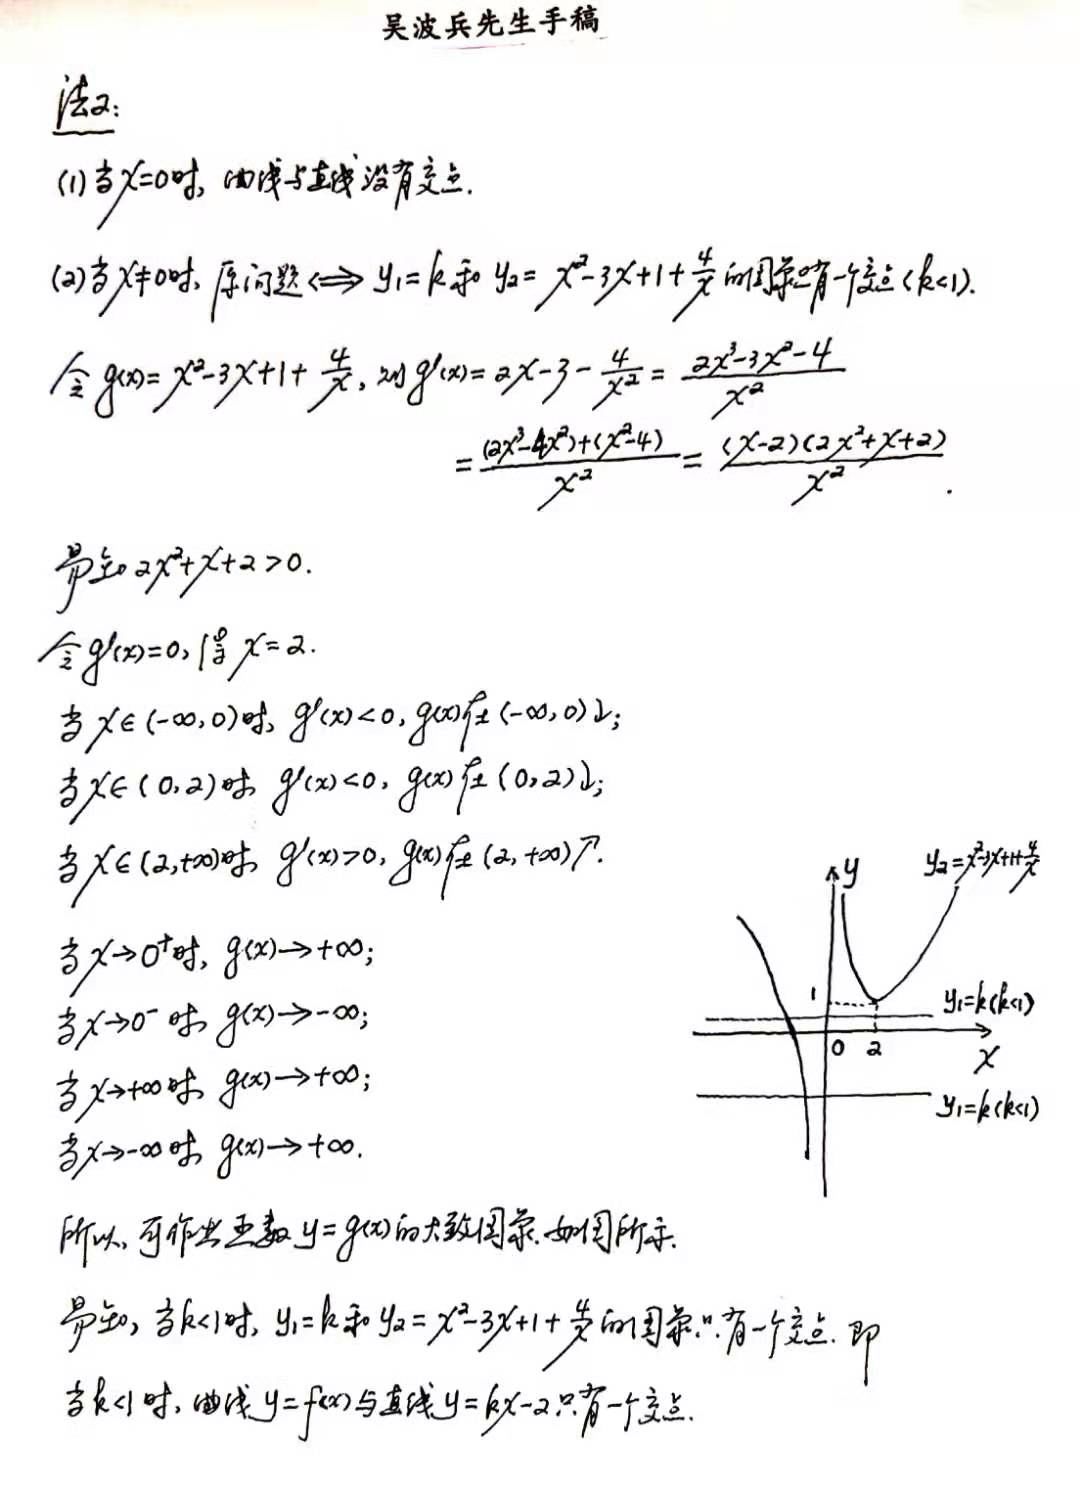 吴波兵先生手稿
法2:
(1)当x=0时, 曲线与直线没有交点.
(2)当x≠0时, 原问题⟺ y₁=k和 y₂= x²-3x+1+4/x 的图象只有一个交点(k<1).
令g(x)=x²-3x+1+4/x, 则g'(x)=2x-3-4/x²=(2x³-3x²-4)/x²
=((2x³-4x²)+(x²-4))/x²=((x-2)(2x²+x+2))/x².
易知2x²+x+2>0.
令g'(x)=0,得x=2.
当x∈(-∞,0)时, g'(x)<0, g(x)在(-∞,0)↓;
当x∈(0,2)时, g'(x)<0, g(x)在(0,2)↓;
当x∈(2,+∞)时, g'(x)>0, g(x)在(2,+∞)↗.
当x→0⁺时, g(x)→+∞;
当x→0⁻时, g(x)→-∞;
当x→+∞时, g(x)→+∞;
当x→-∞时, g(x)→+∞.
y
y₂=x²-3x+1+4/x
1
y₁=k(k<1)
0 2
x
y₁=k(k<1)
所以, 可作出函数y=g(x)的大致图象.如图所示.
易知, 当k<1时, y₁=k和y₂=x²-3x+1+4/x的图象只有一个交点. 即
当k<1时, 曲线y=f(x)与直线y=kx-2只有一个交点.